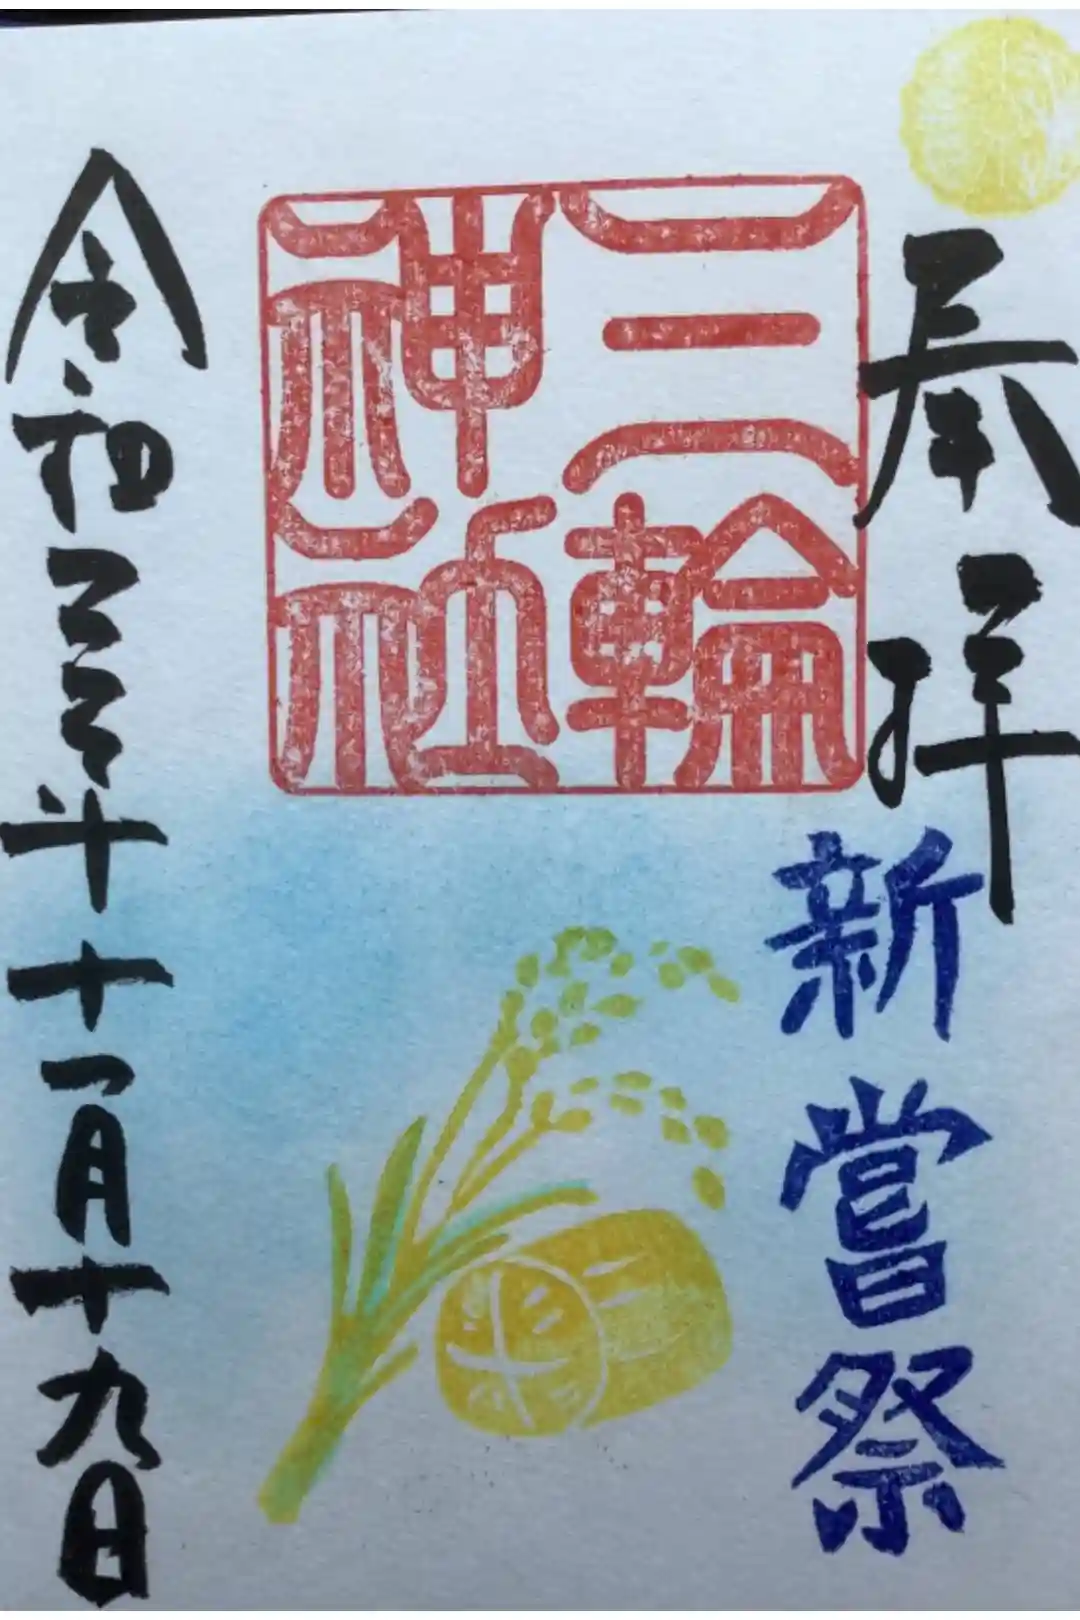 奉拝
新嘗祭
三輪
神社
令和三年十一月十九日